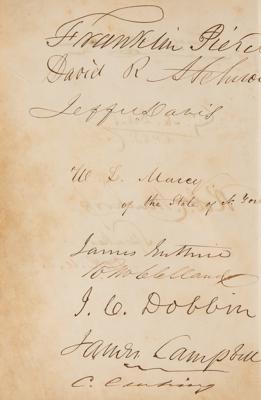 Franklin Pierc
David R Atchiso
Jeffn Davis
W L Marcy
of the State of N. Yor
James Guthrie
R McClelland
J. C. Dobbin
James Campbell
C. Cushing